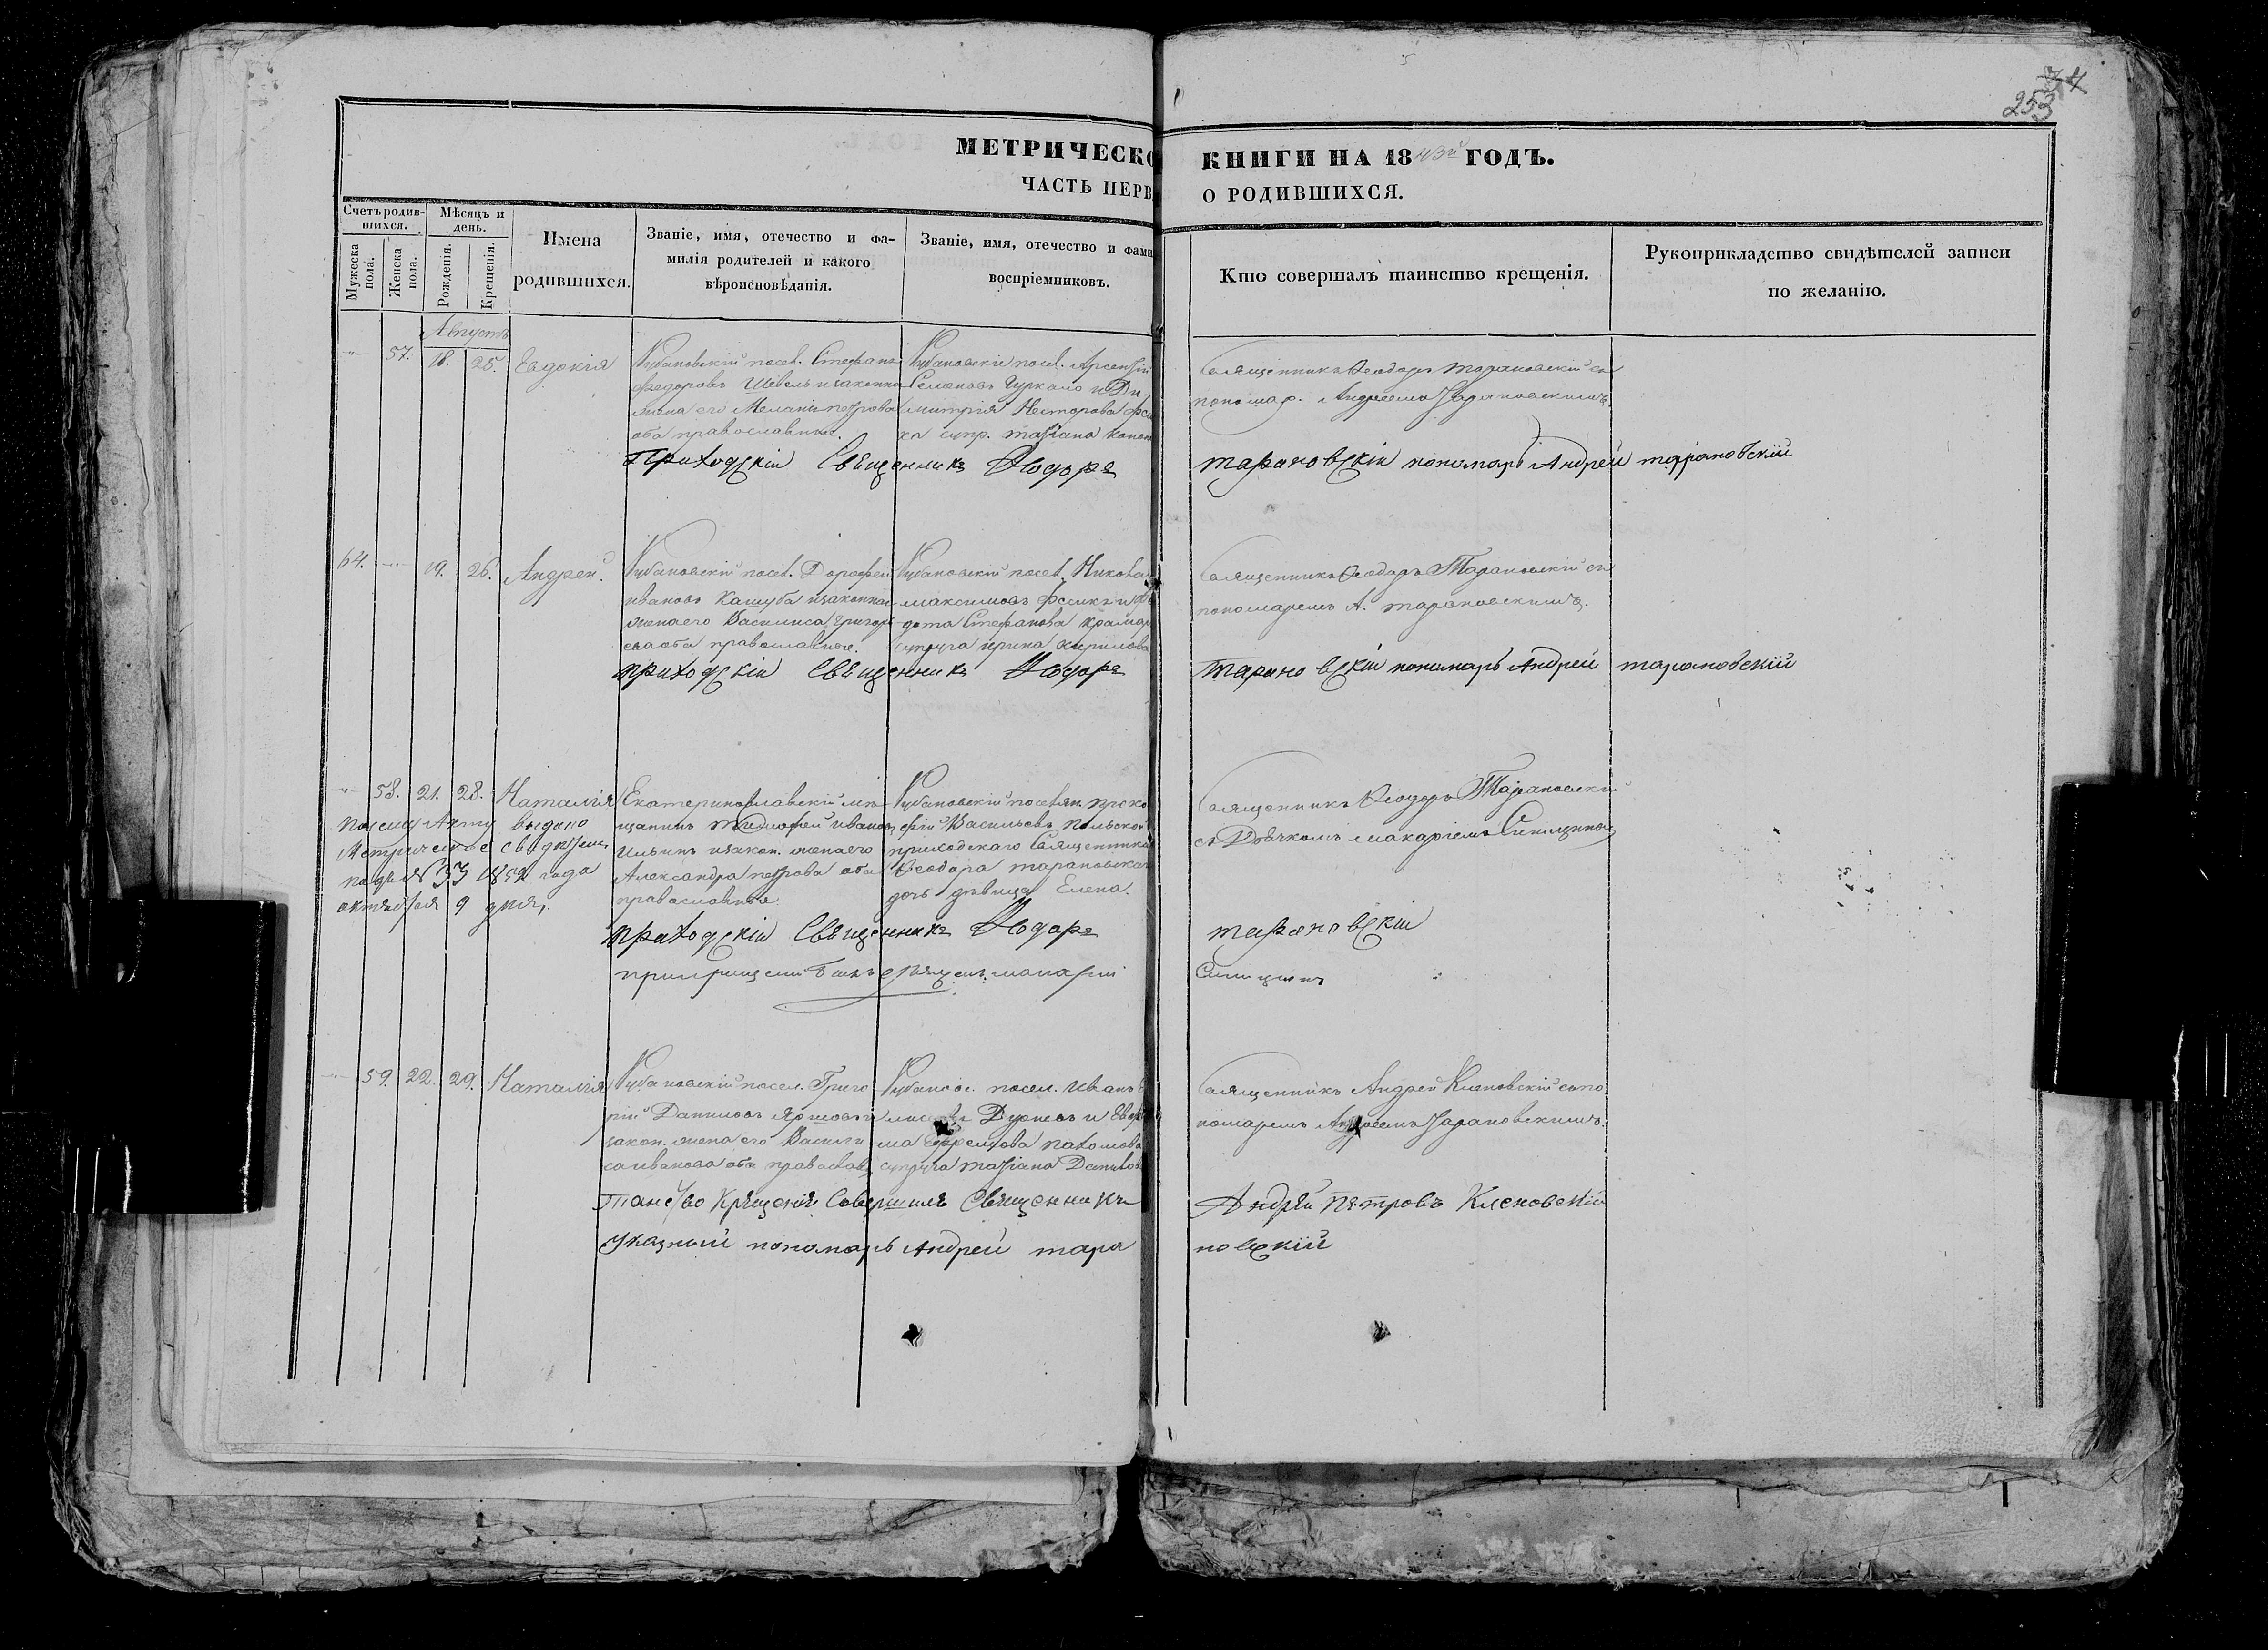 253
МЕТРИЧЕСКО КНИГИ НА 1843й ГОДЪ.
ЧАСТЬ ПЕРВ О РОДИВШИХСЯ.
Счетъ родив-
шихся.
Мужеска
пола.
Женска
пола.
Мѣсяцъ и
день.
Рожденія.
Крещенія.
Имена
родившихся.
Званіе, имя, отечество и фа-
милія родителей и какого
вѣроисповѣданія.
Званіе, имя, отечество и фами
воспріемниковъ.
Кто совершалъ таинство крещенія.
Рукоприкладство свидѣтелей записи
по желанію.
Августъ
57. 18. 25. Евдокія
Рубановскій посел. Стефанъ
Федоровъ Шевель и законная
жена его Меланія Петрова
оба православные.
Рубановскіе посел. Арсеній
Семеновъ Чуркало и Ди-
митрія Несторова
супр. Татіана
Священникъ Феодоръ Тарановскій съ
пономар. Андреемъ Тарановскимъ.
Приходскій Священникъ Федоръ Тарановскій пономарь Андрей Тарановскій
64. 19. 26. Андрей.
Рубановскій посел. Дорофей
Ивановъ Кашуба и законная
жена его Василиса Григорь-
ева оба православные.
Рубановскій посел. Николай
Максимовъ Фесикъ и Фе
дота Стефанова
супруга Ирина Кирилова
Священникъ Феодоръ Тарановскій съ
пономаремъ А. Тарановскимъ.
Приходскій Священникъ Федоръ Тарановскій пономарь Андрей Тарановскій
58. 21. 28. Наталія
По сему Акту выдано
Метрическое свидѣтел.
подъ № 33 1852 года
октября 9 дня.
Екатеринославскій мѣ-
щанинъ Тимофей Ивановъ
Ильинъ и закон. жена его
Александра Петрова оба
православные.
Рубановскій поселян. Проко
фій Васильевъ Польской
приходскаго Священника
Феодора Тарановскаго
дочь дѣвица Елена.
Священникъ Феодоръ Тарановскій
съ Дьячкомъ Макаріемъ Синицинымъ
Приходскій Священникъ Федоръ Тарановскій
при крещеніи былъ Макарій Синицинъ
59. 22. 29. Наталія
Рубановскій посел. Григо
рій Даниловъ и
закон. жена его Васили
са Иванова оба православ.
Рубановс. посел. Иванъ
и Евфи
ма Ефремова Пахомова
супруга Татіана Данилов
Священникъ Андрей Кленовскій съ по
номаремъ Андреемъ Тарановскимъ.
Таинство Крещенія Совершилъ Священникъ Андрей Петровъ Кленовскій
Указный пономарь Андрей Тара новскій